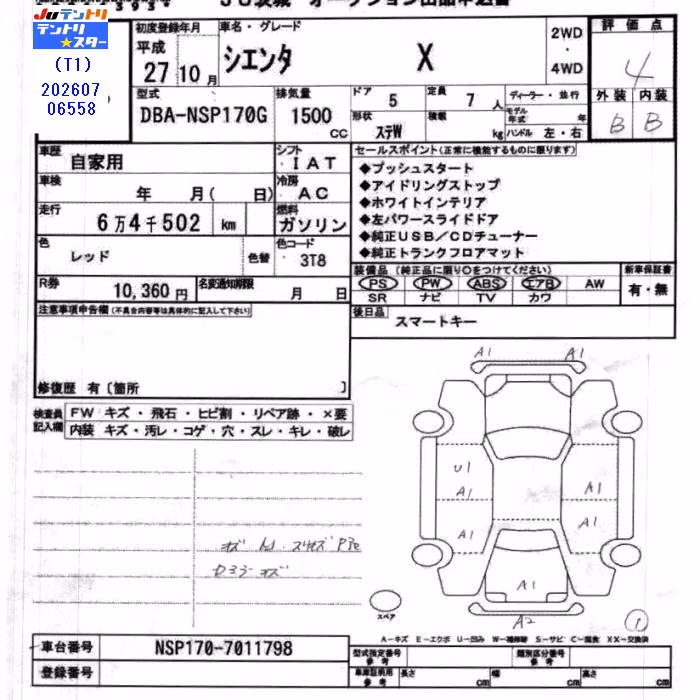 JUテントリ
テントリ★スター
(T1)
202607
06558
初度登録年月
平成
27 10 月
車名・グレード
シエンタ X
2WD
・
4WD
評価点
4
外装 内装
B B
型式
DBA-NSP170G
排気量
1500
CC
ドア 5
定員 7 人
形状 ステW
積載 kg
ディーラー・並行
モデル年式 年
ハンドル 左・右
車歴 自家用
シフト ・IAT
車検 年 月( 日)
冷房 ・AC
走行 6万4千502 km
燃料 ガソリン
色 レッド 色替
色コード ・3T8
R券 10,360円
名変通知期限 月 日
セールスポイント(正常に機能するものに限ります)
◆プッシュスタート
◆アイドリングストップ
◆ホワイトインテリア
◆左パワースライドドア
◆純正USB/CDチューナー
◆純正トランクフロアマット
装備品(純正品に限り○をつけてください)
PS PW ABS エアB AW
SR ナビ TV カワ
新車保証書
有・無
後日品
スマートキー
注意事項申告欄(不具合内容等は具体的に記入して下さい)
修復歴 有〔箇所 〕
検査員記入欄
FW キズ・飛石・ヒビ割・リペア跡・×要
内装 キズ・汚レ・コゲ・穴・スレ・キレ・破レ
A1 A1
U1
A1 A1
A1 A1
A1
A2
1
スペア
A-キズ E-エクボ U-凹み W-補修跡 S-サビ C-腐食 XX-交換済
車台番号 NSP170-7011798
登録番号
型式指定番号 参考
類別区分番号 参考
車庫証明用 参考
長さ cm 幅 cm 高さ cm